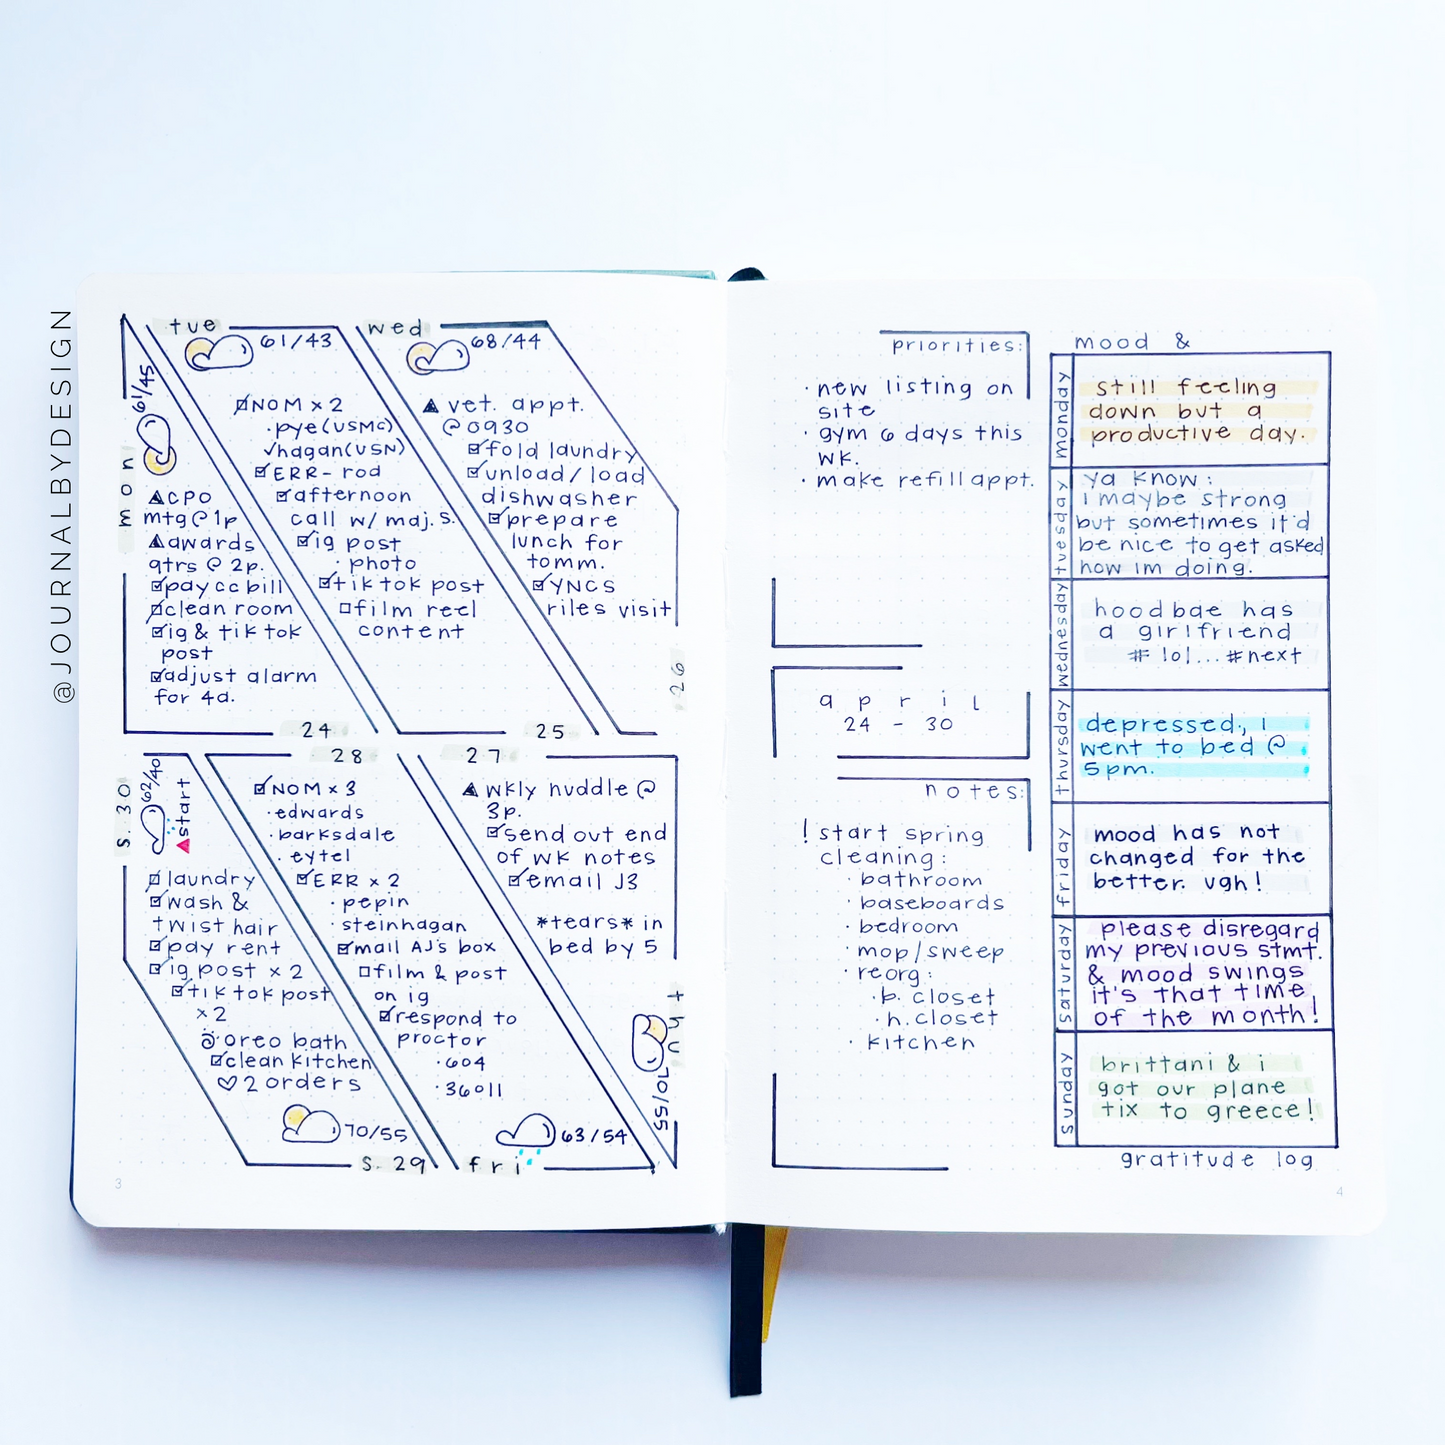 @JOURNALBYDESIGN
mon
61/45
cpo
mtg @ 1p
awards
qtrs @ 2p.
pay cc bill
clean room
ig & tik tok
post
adjust alarm
for 4a.
24
tue
61/43
NOM x 2
· pye (USMC)
✓hagan (USN)
ERR - rod
afternoon
call w/ maj. s.
ig post
· photo
tik tok post
film reel
content
25
wed
68/44
vet. appt.
@ 0930
fold laundry
unload/load
dishwasher
prepare
lunch for
tomm.
YNCS
riles visit
26
27
wkly huddle @
3p.
send out end
of wk notes
email J3
*tears* in
bed by 5
thu
70/55
28
NOM x 3
· edwards
· barksdale
· eytel
ERR x 2
· pepin
· steinhagan
mail AJ's box
film & post
on ig
respond to
proctor
· 604
· 36011
63/54
fri
s. 30
62/40
start
laundry
wash &
twist hair
pay rent
ig post x 2
tik tok post
x 2
oreo bath
clean kitchen
♡ 2 orders
70/55
s. 29
3
priorities:
· new listing on
site
· gym 6 days this
wk.
· make refill appt.
april
24 - 30
notes:
! start spring
cleaning:
· bathroom
· baseboards
· bedroom
· mop/sweep
· reorg:
· b. closet
· h. closet
· kitchen
mood &
monday
still feeling
down but a
productive day.
tuesday
ya know:
i maybe strong
but sometimes it'd
be nice to get asked
how im doing.
wednesday
hoodbae has
a girlfriend
# lol... #next
thursday
depressed, i
went to bed @
5pm.
friday
mood has not
changed for the
better. ugh!
saturday
please disregard
my previous stmt.
& mood swings
it's that time
of the month!
sunday
brittani & i
got our plane
tix to greece!
gratitude log
4